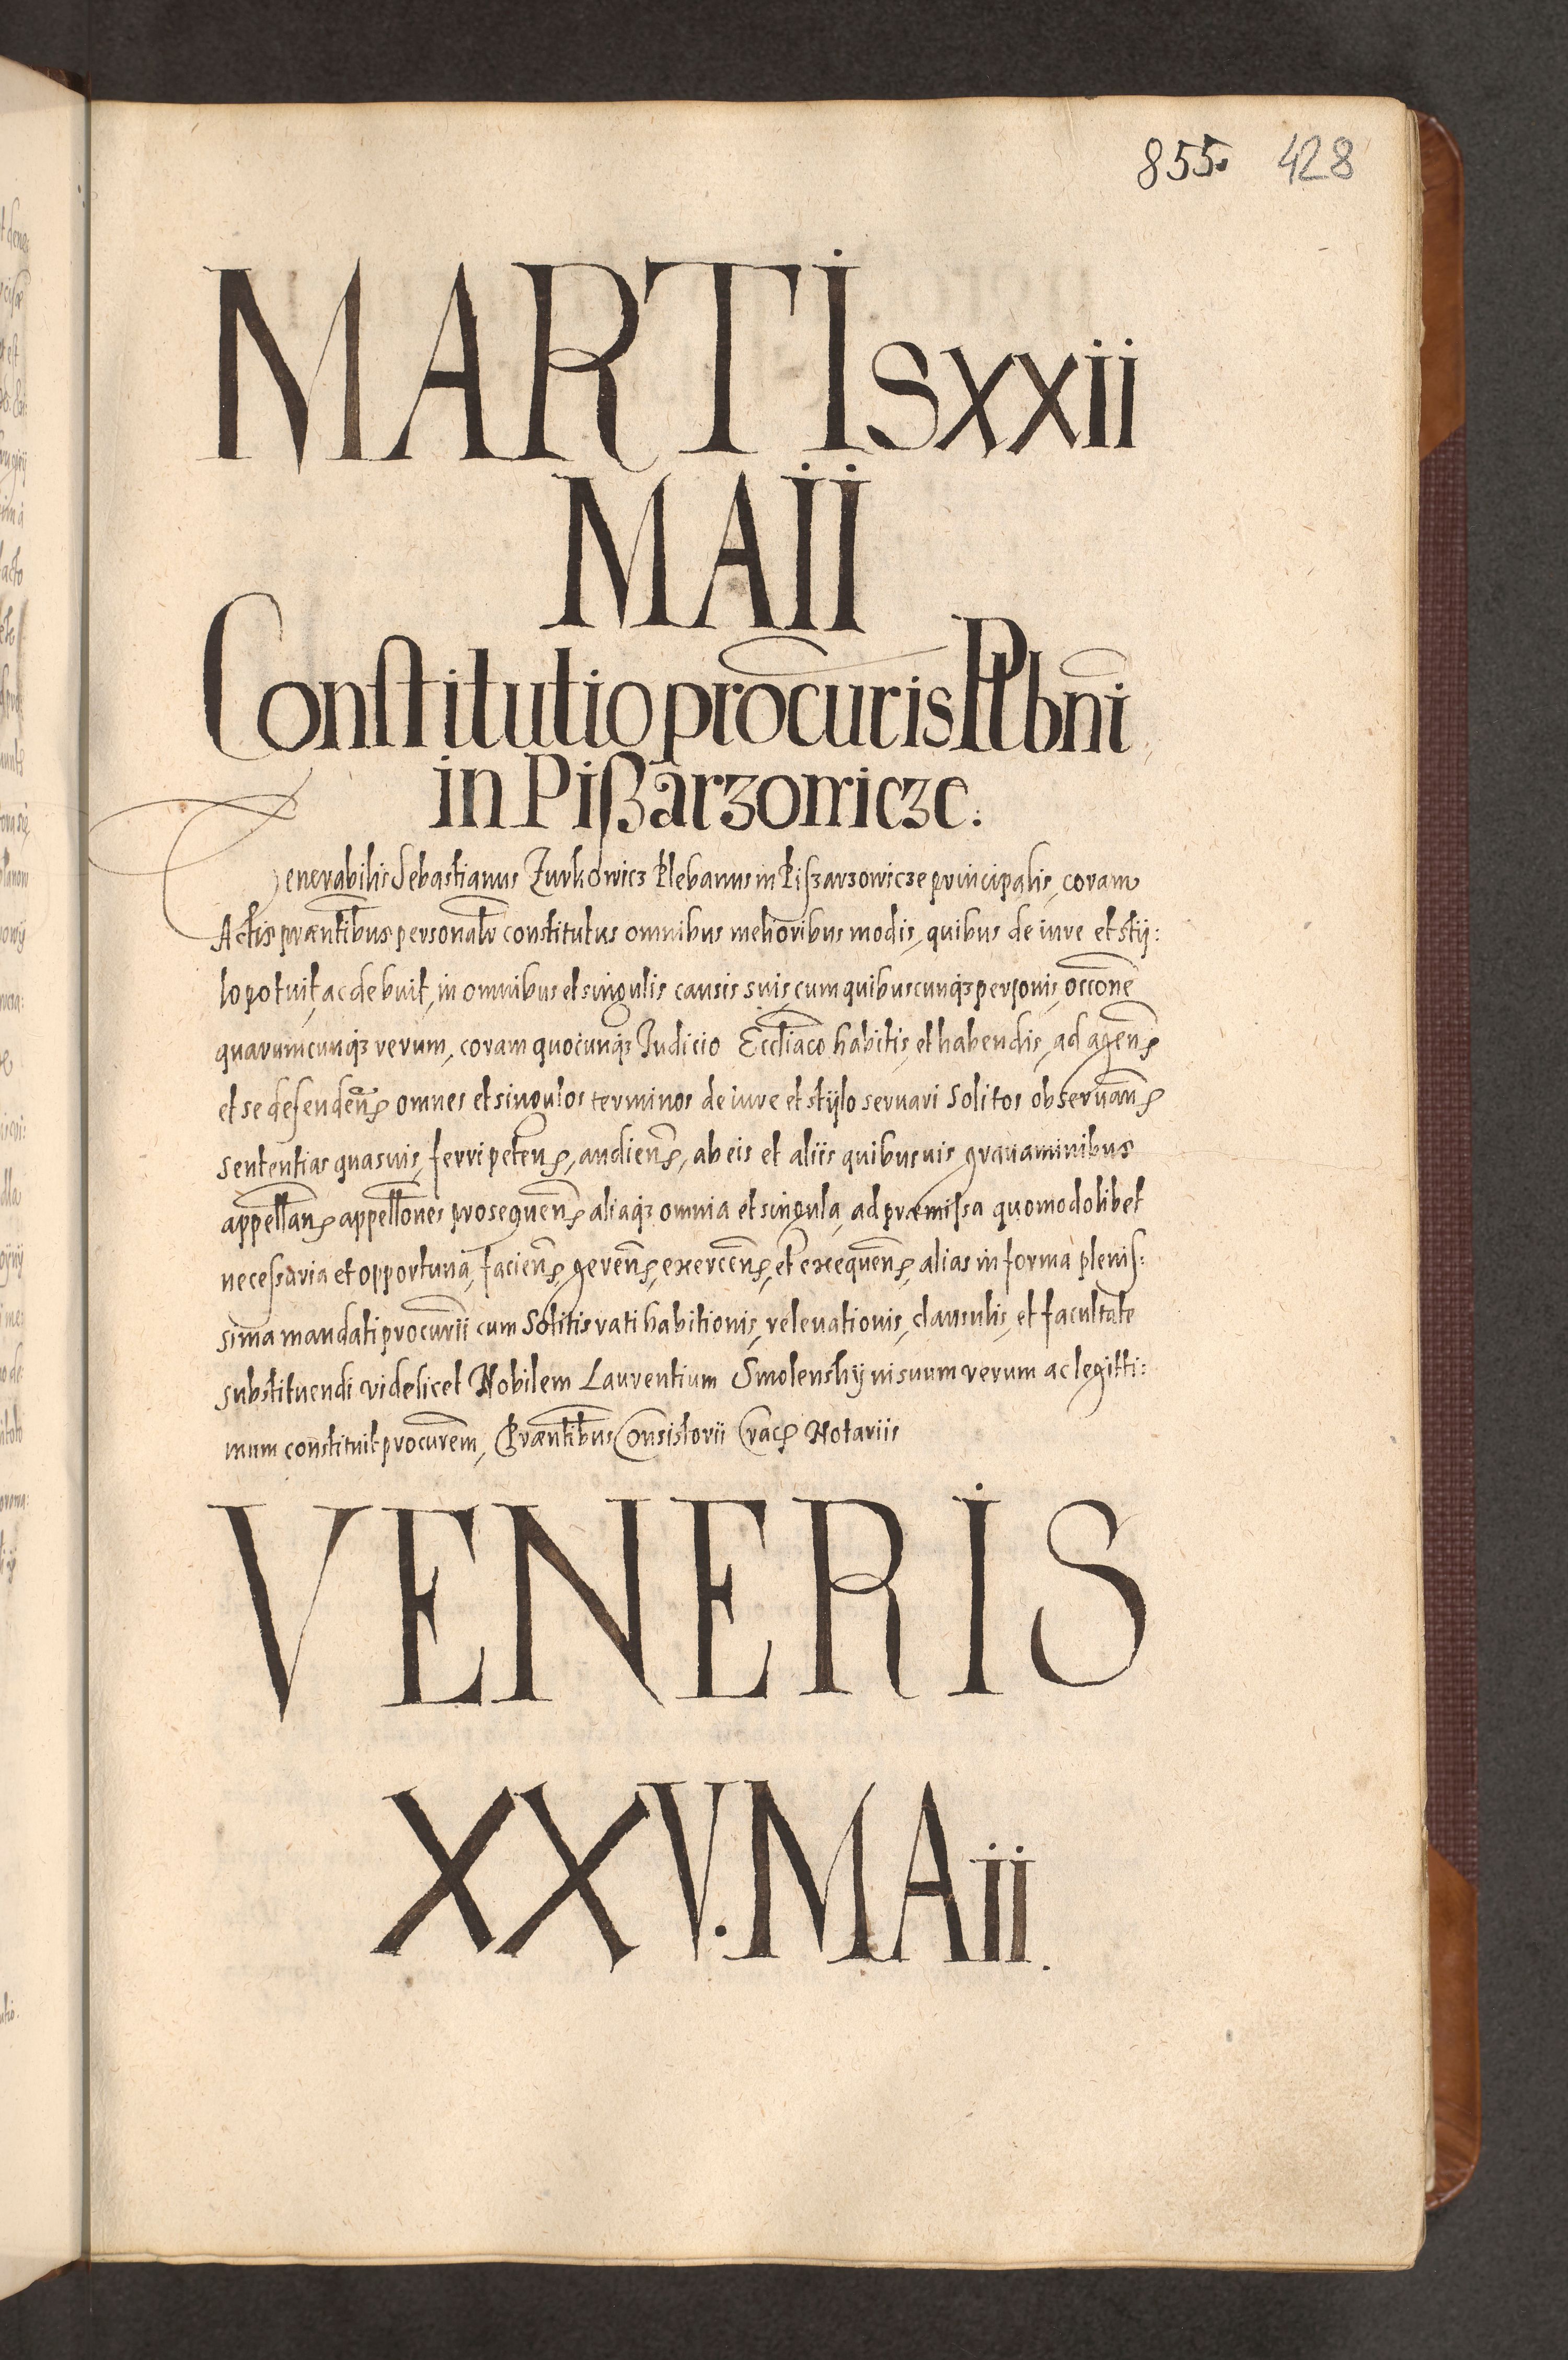 855. 428
MARTIS XXII
MAII
Constitutio procuris Plbni
in Pißarzowicze.
Venerabilis Sebastianus Zurkowicz Plebanus in Pißarzowicze principalis, coram
Actis præntibus personalr constitutus omnibus melioribus modis, quibus de iure et stÿ:
lo potuit, ac debuit, in omnibus et singulis causis suis, cum quibuscunqꝫ personis, occōne
quarumcunqꝫ rerum, coram quocunqꝫ Iudicio Eccliaco habitis, et habendis, ad agenꝭ
et se defendenꝭ omnes et singulos terminos de iure et stÿlo seruari Solitos obseruanꝭ
sententias quasuis, ferri petenꝭ, audienꝭ, ab eis et aliis quibusuis grauaminibus
appellanꝭ appellones prosequenꝭ aliaqꝫ omnia et singula, ad præmissa quomodolibet
necessaria et opportuna, facienꝭ, gerenꝭ, exercenꝭ, et exequenꝭ, alias in forma plenis:
sima mandati procurii cum Solitis rati habitionis, releuationis, clausulis, et facultate
substituendi videlicet Nobilem Laurentium Smolenskÿ uisuum verum ac legitti:
mum constituit procurem, Præntibus Consistorii Cracꝭ Notariis
VENERIS
XXV. MAII.